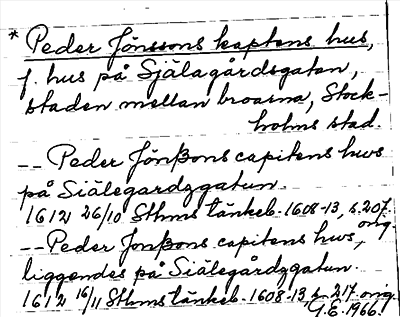 * Peder Jönssons kaptens hus,
f. hus på Själagårdsgatan,
staden mellan broarna, Stock-
holms stad.
-- Peder Jönßons capitens huus
på Siälegardzgatun.
1612 26/10 Sthms tänkeb. 1608-13, s. 207.
orig.
-- Peder Jonßons capitens huus,
liggendes på Siälegårdzgatun.
1612 16/11 Sthms tänkeb. 1608-13 s. 217 orig.
9.6.1966.